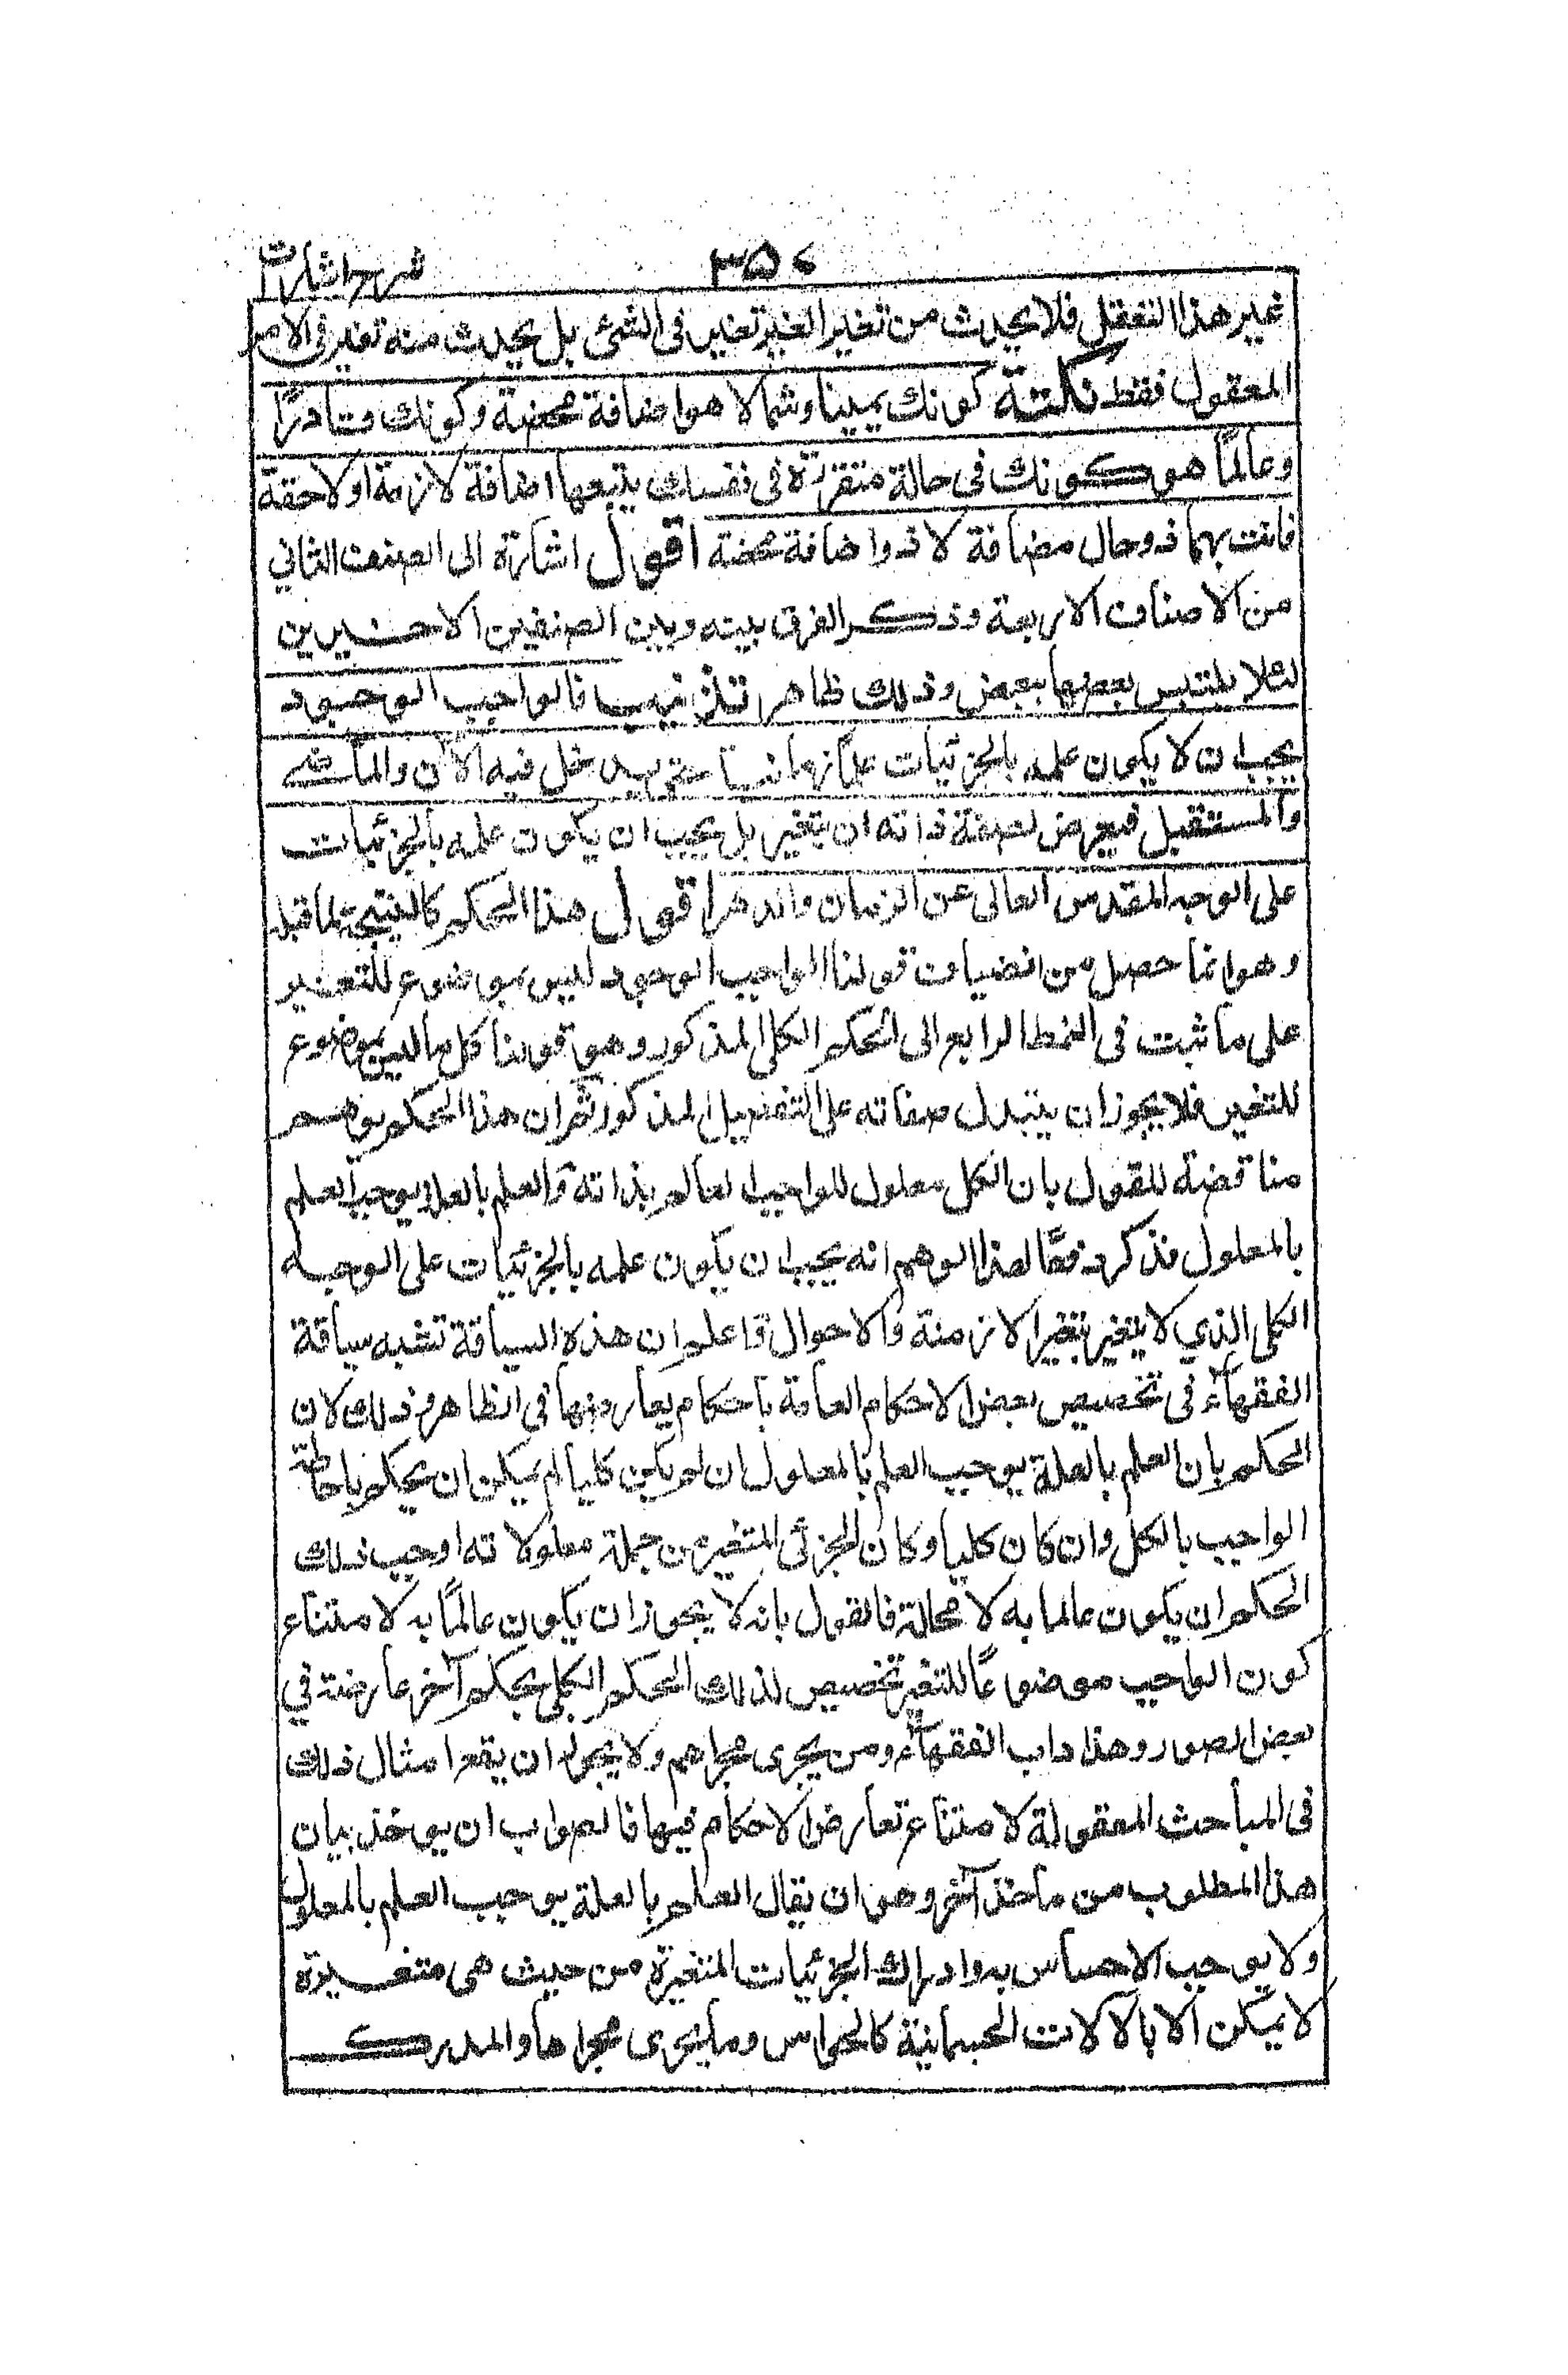 شرح اشارات
غير هذا التعقل فلا يحدث من تغير الغير تغير فى الشئ بل يحدث منه تغير فى الامر
المعقول فقط نكتة كونك يمينا وشمالا هو اضافة محضة وكونك قادرًا
وعالمًا هو كونك فى حالة متقررة فى نفسك يتبعها اضافة لازمة او لاحقة
فانت بهما ذو حال مضافة لا ذو اضافة محضة اقول اشارة الى الصنف الثاني
من الاصناف الاربعة وذكر الفرق بينه وبين الصنفين الاخيرين
لئلا يلتبس بعضها ببعض وذلك ظاهر تذنيب فالواجب الوجود
يجب ان لا يكون علمه بالجزئيات علمًا زمانيا حتى يدخل فيه الآن والماضے
والمستقبل فيعرض لصفة ذاته ان يتغير بل يجب ان يكون علمه بالجزئيات
على الوجه المقدس العالى عن الزمان والدهر اقول هذا الحكم كالنتيجة لما قبله
وهو انما حصل من انضياف قولنا الواجب الوجود ليس بموضوع للتغير
على ما ثبت فى النمط الرابع الى الحكم الكلى المذكور وهو قولنا كل ما ليس بموضوع
للتغير فلا يجوز ان يتبدل صفاته على التفصيل المذكور ثم ان هذا الحكم يوهم
مناقضة للقول بان الكل معلول للواجب العالم بذاته والعلم بالعلة يوجب العلم
بالمعلول فذكر دفعًا لهذا الوهم انه يجب ان يكون علمه بالجزئيات على الوجه
الكلى الذي لا يتغير بتغير الازمنة والاحوال واعلم ان هذه السياقة تشبه سياقة
الفقهاء فى تخصيص بعض الاحكام العامة باحكام يعارضها فى الظاهر وذلك لان
الحكم بان العلم بالعلة يوجب العلم بالمعلول ان لم يكن كليا لم يمكن ان يحكم باحاطة
الواجب بالكل وان كان كليا وكان الجزئى المتغير من جملة معلولاته اوجب ذلك
الحكم ان يكون عالما به لا محالة فالقول بانه لا يجوز ان يكون عالمًا به لامتناع
كون الواجب موضوعًا للتغير تخصيص لذلك الحكم الكلى بحكم آخر عارضة في
بعض الصور وهذا داب الفقهاء ومن يجرى مجراهم ولا يجوز ان يقع امثال ذلك
فى المباحث المعقولة لامتناع تعارض الاحكام فيها فالصواب ان يوخذ بيان
هذا المطلوب من ماخذ آخر وهو ان يقال العلم بالعلة يوجب العلم بالمعلول
ولا يوجب الاحساس به وادراك الجزئيات المتغيرة من حيث هى متغيرة
لا يمكن الا بالآلات الجسمانية كالحواس وما يجرى مجراها والمدرك